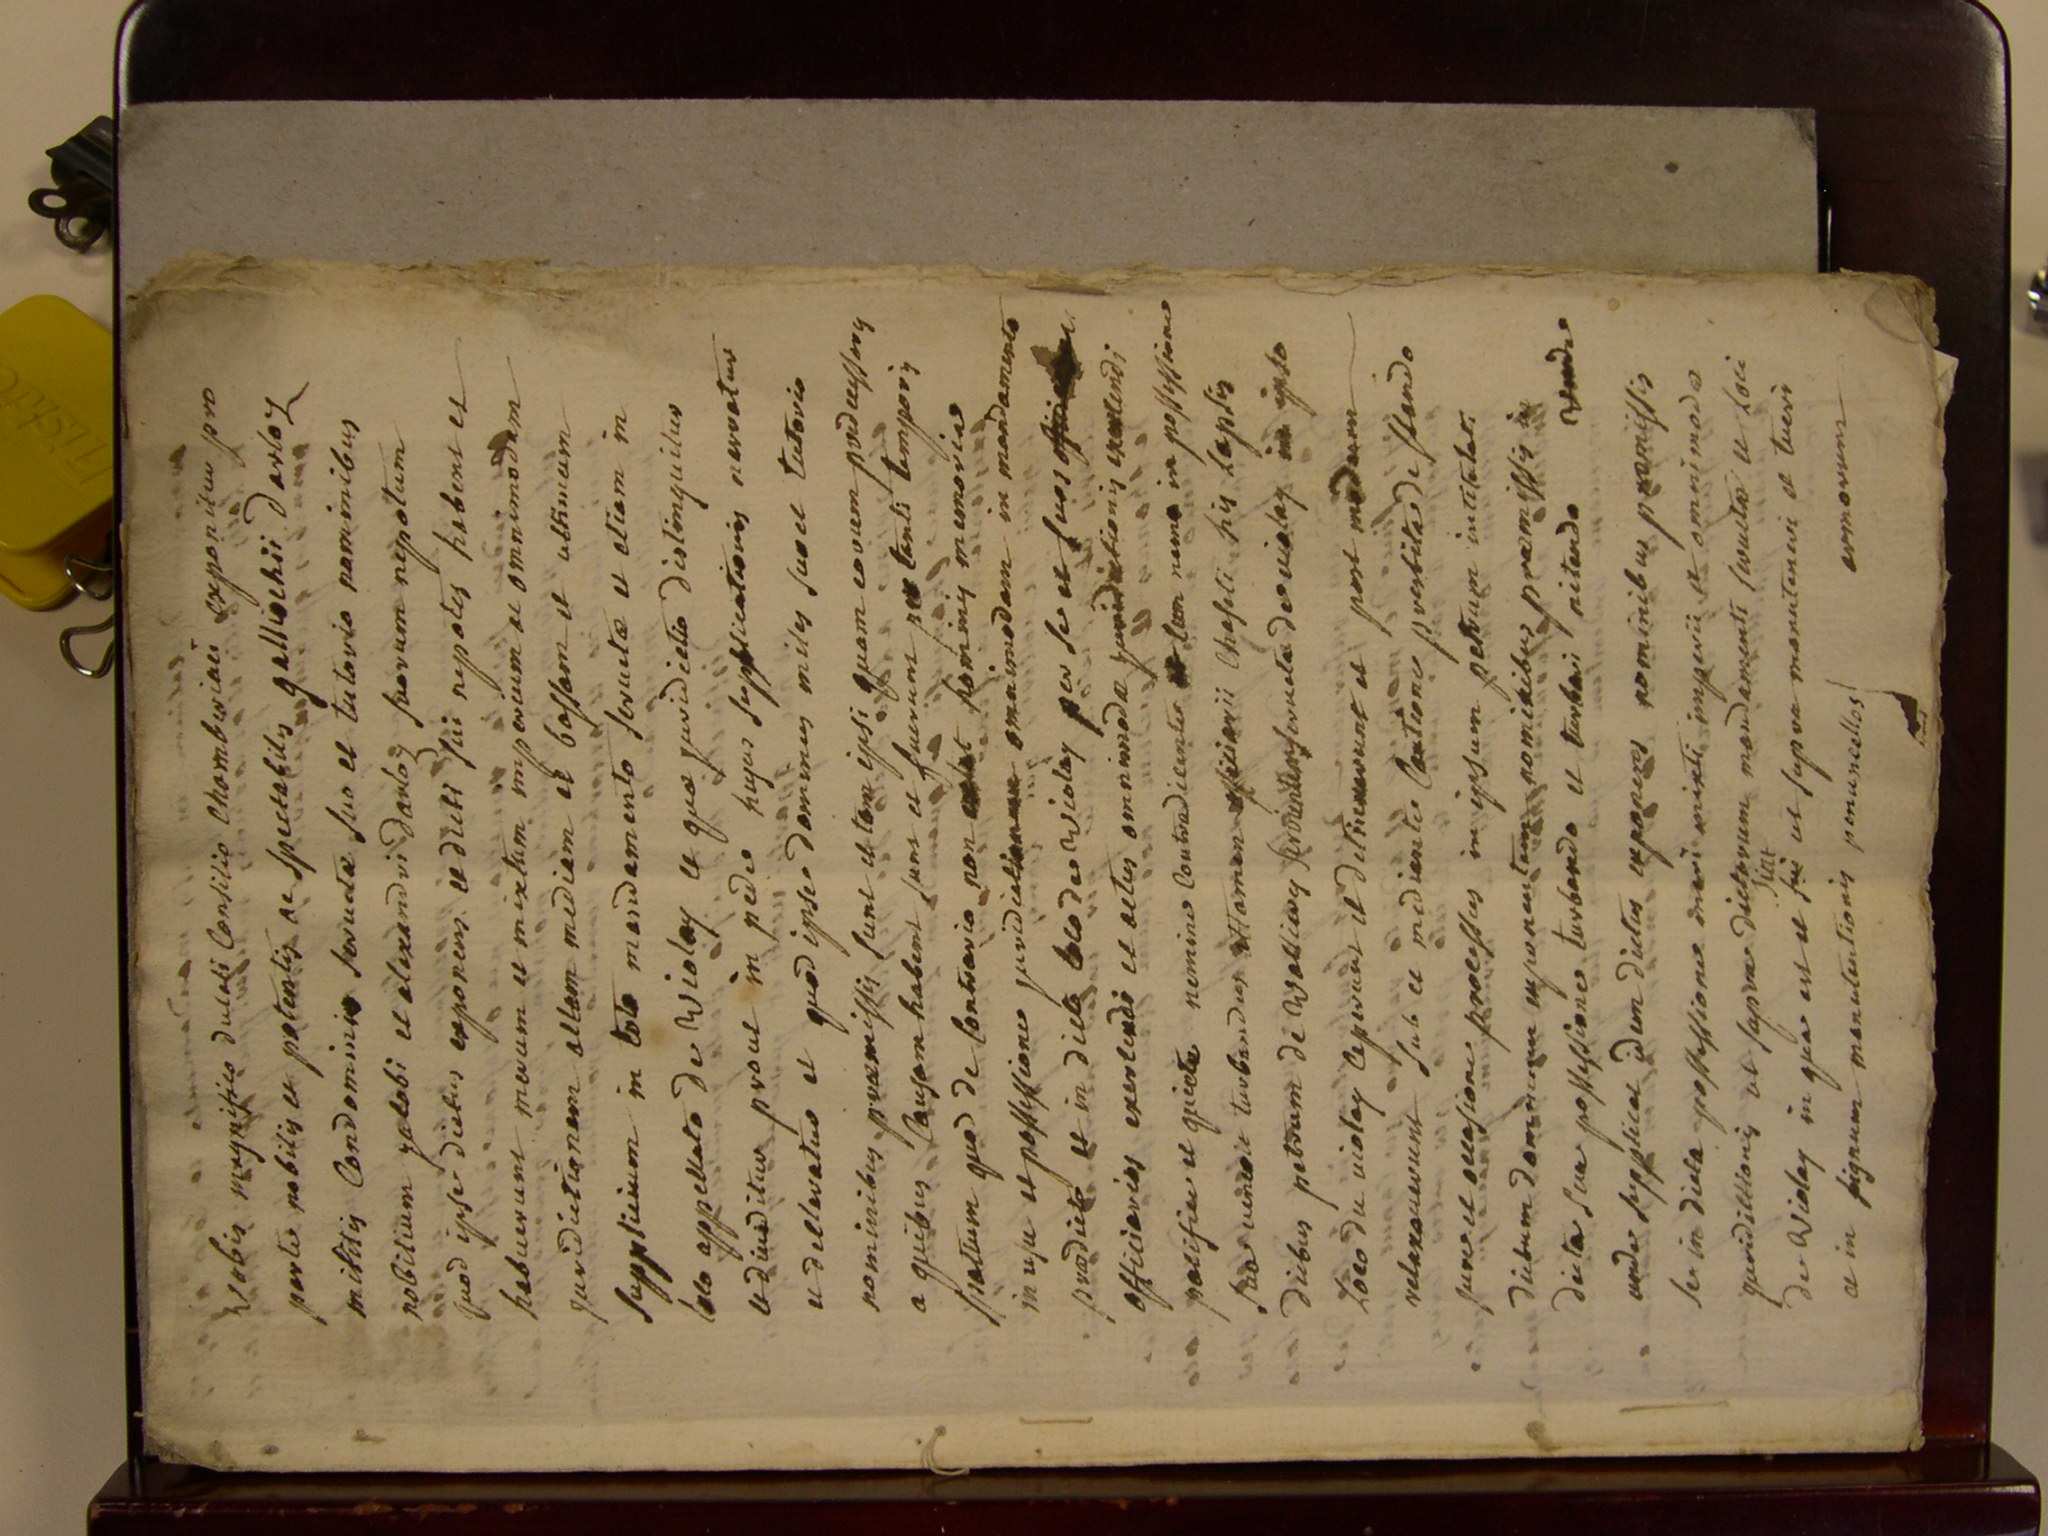 Vobis magnifico ducali Consilio Chamberiaci exponitur pro
parte nobilis et potentis ac spectabilis galliochii darloz
militis Condomini servetæ suo et tutorio nominibus
nobilium jacobi et alexandri darloz suorum nepotum
quod ipse dictus exponens et dicti sui nepotes habent et
habuerunt merum et mixtum imperium ac omnimodam
juridictionem altam mediam et bassam et ultimum
supplicium in toto mandamento servetæ et etiam in
loco appellato de Violay et qua juridictio distinguitur
et dividitur prout in pede hujus supplicationis narratur
et dellaratur et quod ipse dominus miles suo et tutorio
nominibus præmissis sunt et tam ipsi quam eorum prædecessores
a quibus Causam habent sunt et fuerunt per tanti temporis
spatium quod de Contrario non hominis memoria
in usu et possessione juridictionem omnimodam in mandamento
prædicto et in dicto loco de Violay per se et suos
officiarios exercendi et actus omnimodæ juridictionis exercendi
pacifice et quiete nemine Contradicente tam nomine possessione
suo turbandus attamen Chasoli his lapsis
diebus petrum de servientem servetæ de violay in ipso
Loco du violay Ceperunt et detinuerunt et post modum
relaxaverunt sub et mediante Cautione prestita de stando
jure et occasione processus in ipsum petrum intitulati
dictum dominum exponentem nominibus præmissis in
dicta sua possessione turbando et turbari nitendo
unde supplicat idem dictus exponens nominibus præmissis
se in dicta possessione meri mixti imperii et omnimodæ
juridictionis ut supra dictorum mandamenti servetæ et loci
sicut
de Violay in qua est et ut supra manuteneri et tueri
ac in signum manutentionis penuncellos armorum